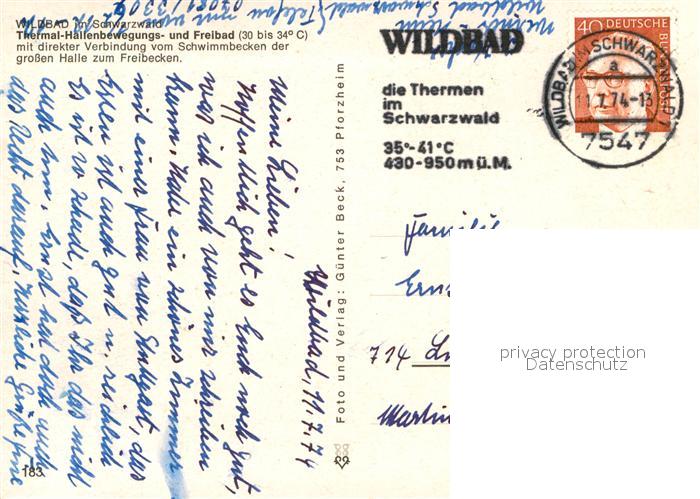 WILDBAD im Schwarzwald
Thermal-Hallenbewegungs- und Freibad (30 bis 34° C)
mit direkter Verbindung vom Schwimmbecken der
großen Halle zum Freibecken.
Wildbad, 11.7.74
Meine Lieben!
Hoffentlich geht es Euch noch gut,
was ich auch von mir schreiben
kann. Habe ein schönes Zimmer
mit einer Frau von Stuttgart, das
Essen ist auch gut u. reichlich
Es ist so schade, daß Ihr das nicht
auch Ernst hat doch auch
das Recht darauf. Herzliche Grüße
183
Foto und Verlag: Günter Beck, 753 Pforzheim
Wildbad Schwarzwald Telefon 07081/
WILDBAD
die Thermen
im
Schwarzwald
35°-41°C
430-950m ü.M.
40 DEUTSCHE BUNDESPOST
WILDBAD IM SCHWARZWALD 1
a
11.7.74-13
7547
Familie
714
privacy protection
Datenschutz